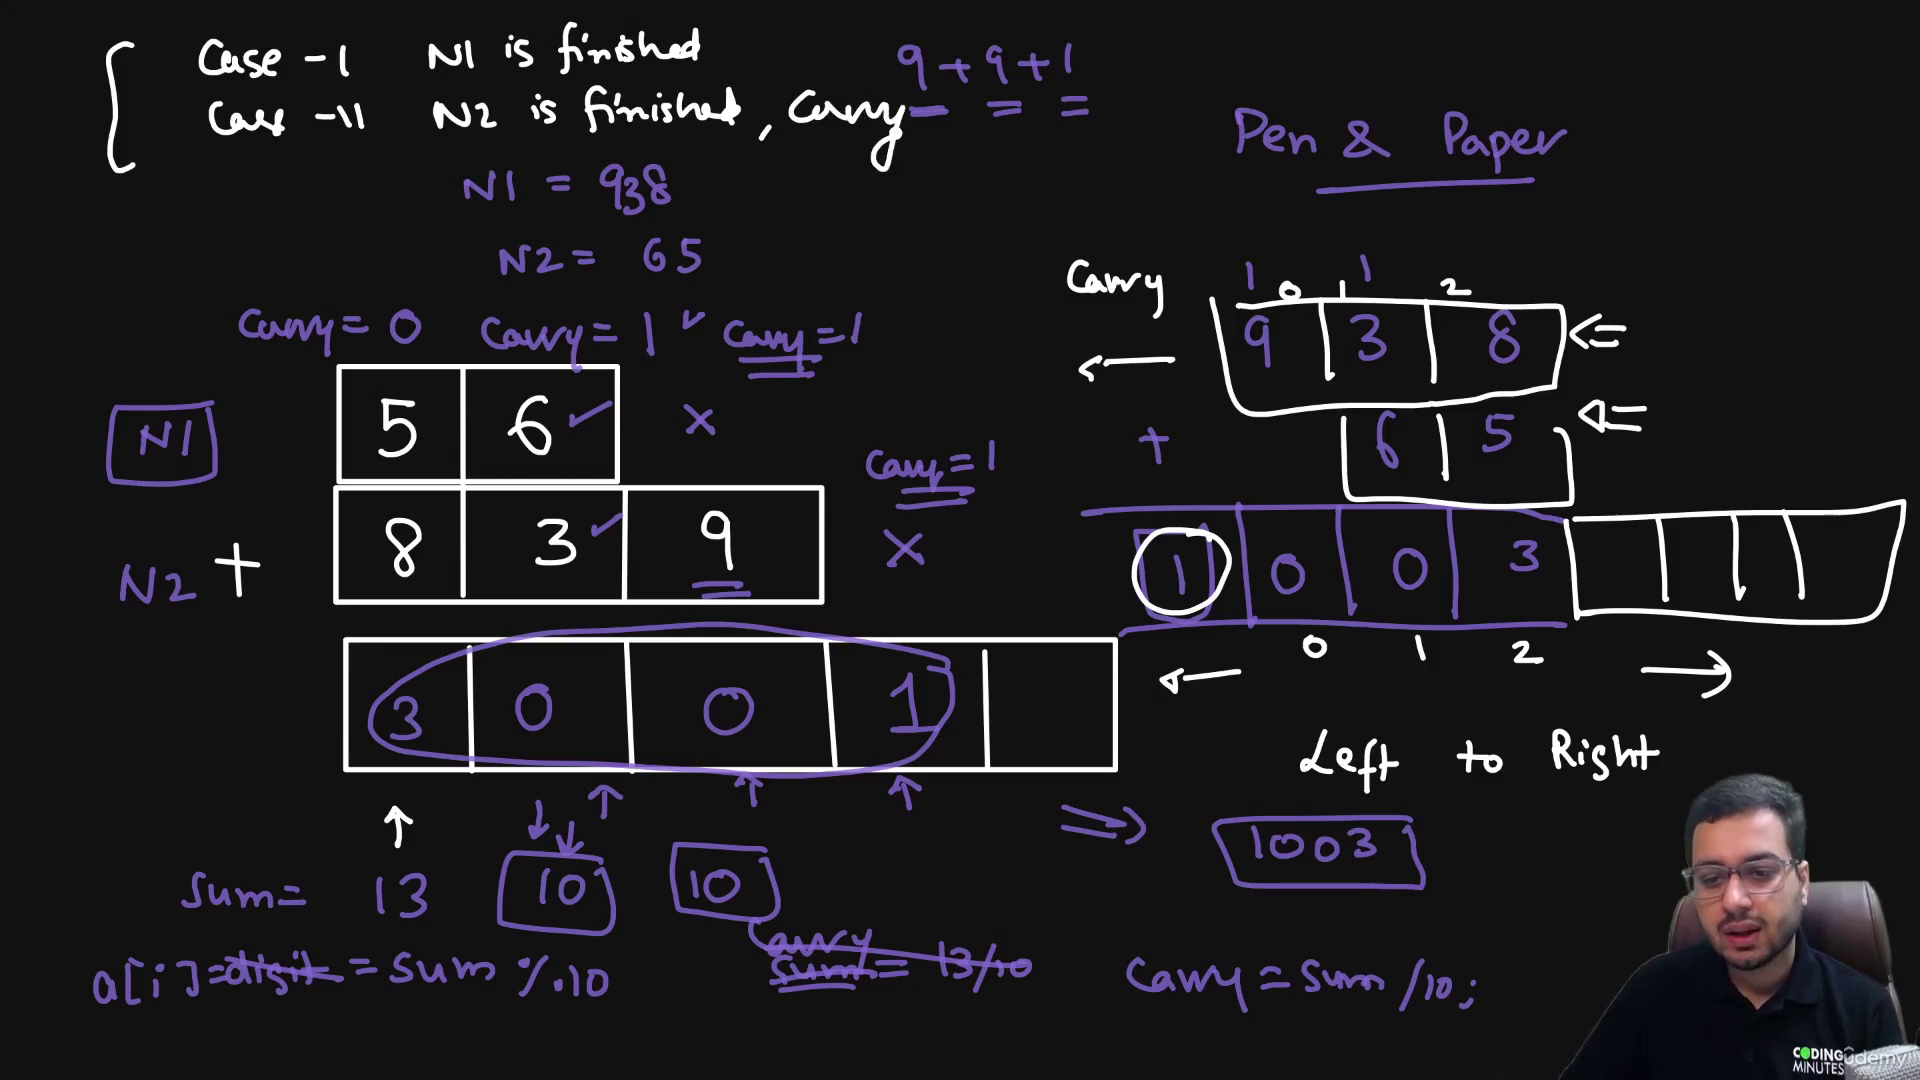 Case -1 N1 is finished
Case -11 N2 is finished, Carry
9 + 9 + 1
Pen & Paper
N1 = 938
N2 = 65
Carry = 0 Carry = 1 Carry = 1
5 6 x
N1
Carry = 1
8 3 9 x
N2 +
3 0 0 1
Sum = 13 10 10
a[i] = digit = Sum % 10
Carry
Sum = 13/10
Carry = Sum /10;
Carry
1 1
0 1 2
9 3 8
+ 6 5
1 0 0 3
0 1 2
Left to Right
1003
CODING
MINUTES
udemy